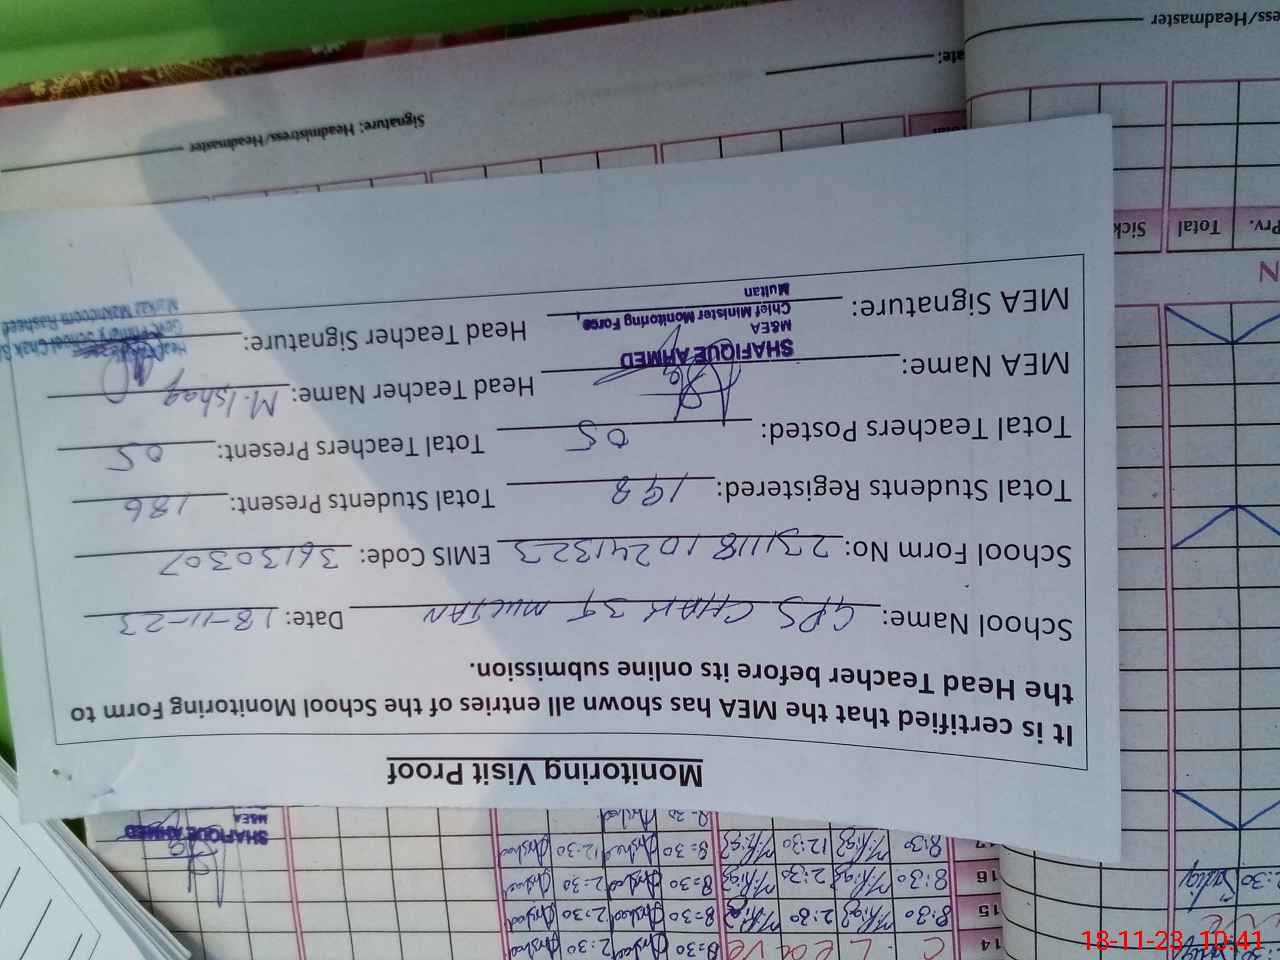 Monitoring Visit Proof
It is certified that the MEA has shown all entries of the School Monitoring Form to
the Head Teacher before its online submission.
School Name: GPS CHAK 39 MULTAN Date: 18-11-23
School Form No: 231118 10241323 EMIS Code: 36130307
Total Students Registered: 198 Total Students Present: 186
Total Teachers Posted: 05 Total Teachers Present: 05
MEA Name: Head Teacher Name: M. Ishaq
SHAFIQUE AHMED
M&EA
Chief Minister Monitoring Force
Multan
MEA Signature: Head Teacher Signature:
Signature: Headmistress/Headmaster
ate:
ess/Headmaster
Prv. Total Sick
N
SHAFIQUE AHMED
M&EA
8:30 12:30 8=30 12:30
16 8:30 2:30 8=30 2=30
15 8:30 2:30 8=30 2:30
14 C. Leave 8=30 2:30
18-11-23 10:41